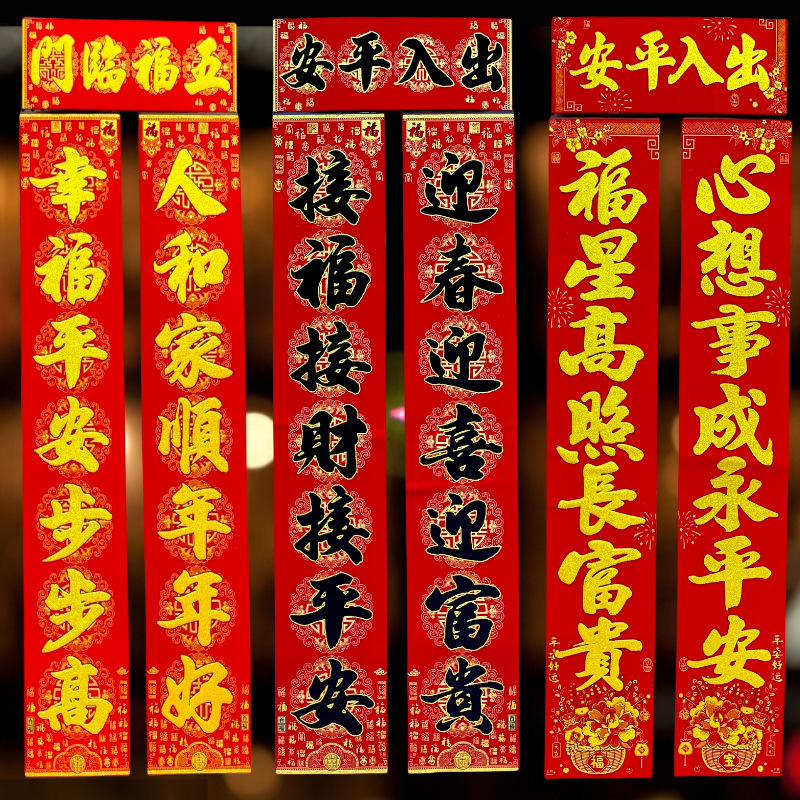 五福臨門
人和家順年年好
幸福平安步步高
出入平安
迎春迎喜迎富貴
接福接財接平安
出入平安
心想事成永平安
福星高照長富貴
福
福
福
福
平安好运
平安好运
福
宝